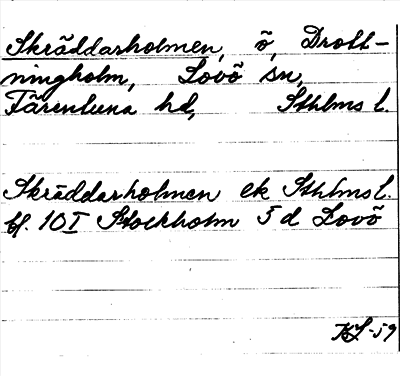 Skräddarholmen, ö, Drott-
ningholm, Lovö sn,
Färentuna hd, Sthlms l.
Skräddarholmen ek Sthlms l.
bl. 10 I Stockholm 5 d Lovö
KL-59